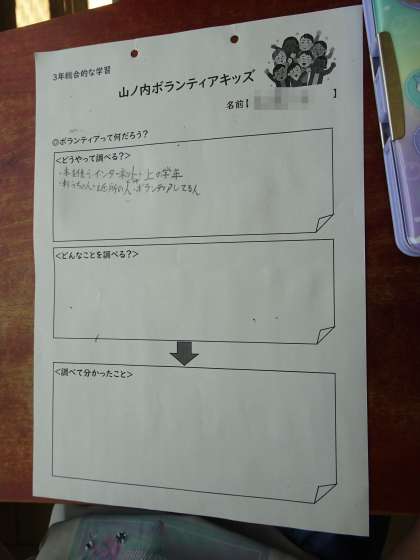 3年総合的な学習
山ノ内ボランティアキッズ
名前【 】
◎ボランティアって何だろう?
<どうやって調べる?>
・本を使う・インターネット・上の学年
・近所の人・ボランティアしてる人
<どんなことを調べる?>
<調べて分かったこと>